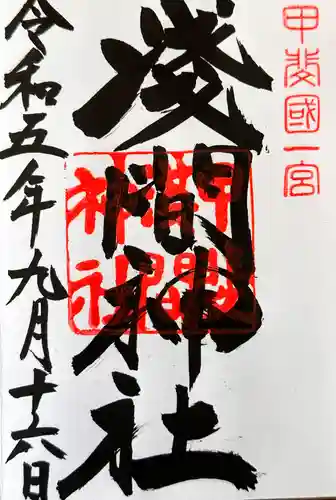 甲斐國一宮
淺間神社
淺間神社
令和五年九月十六日